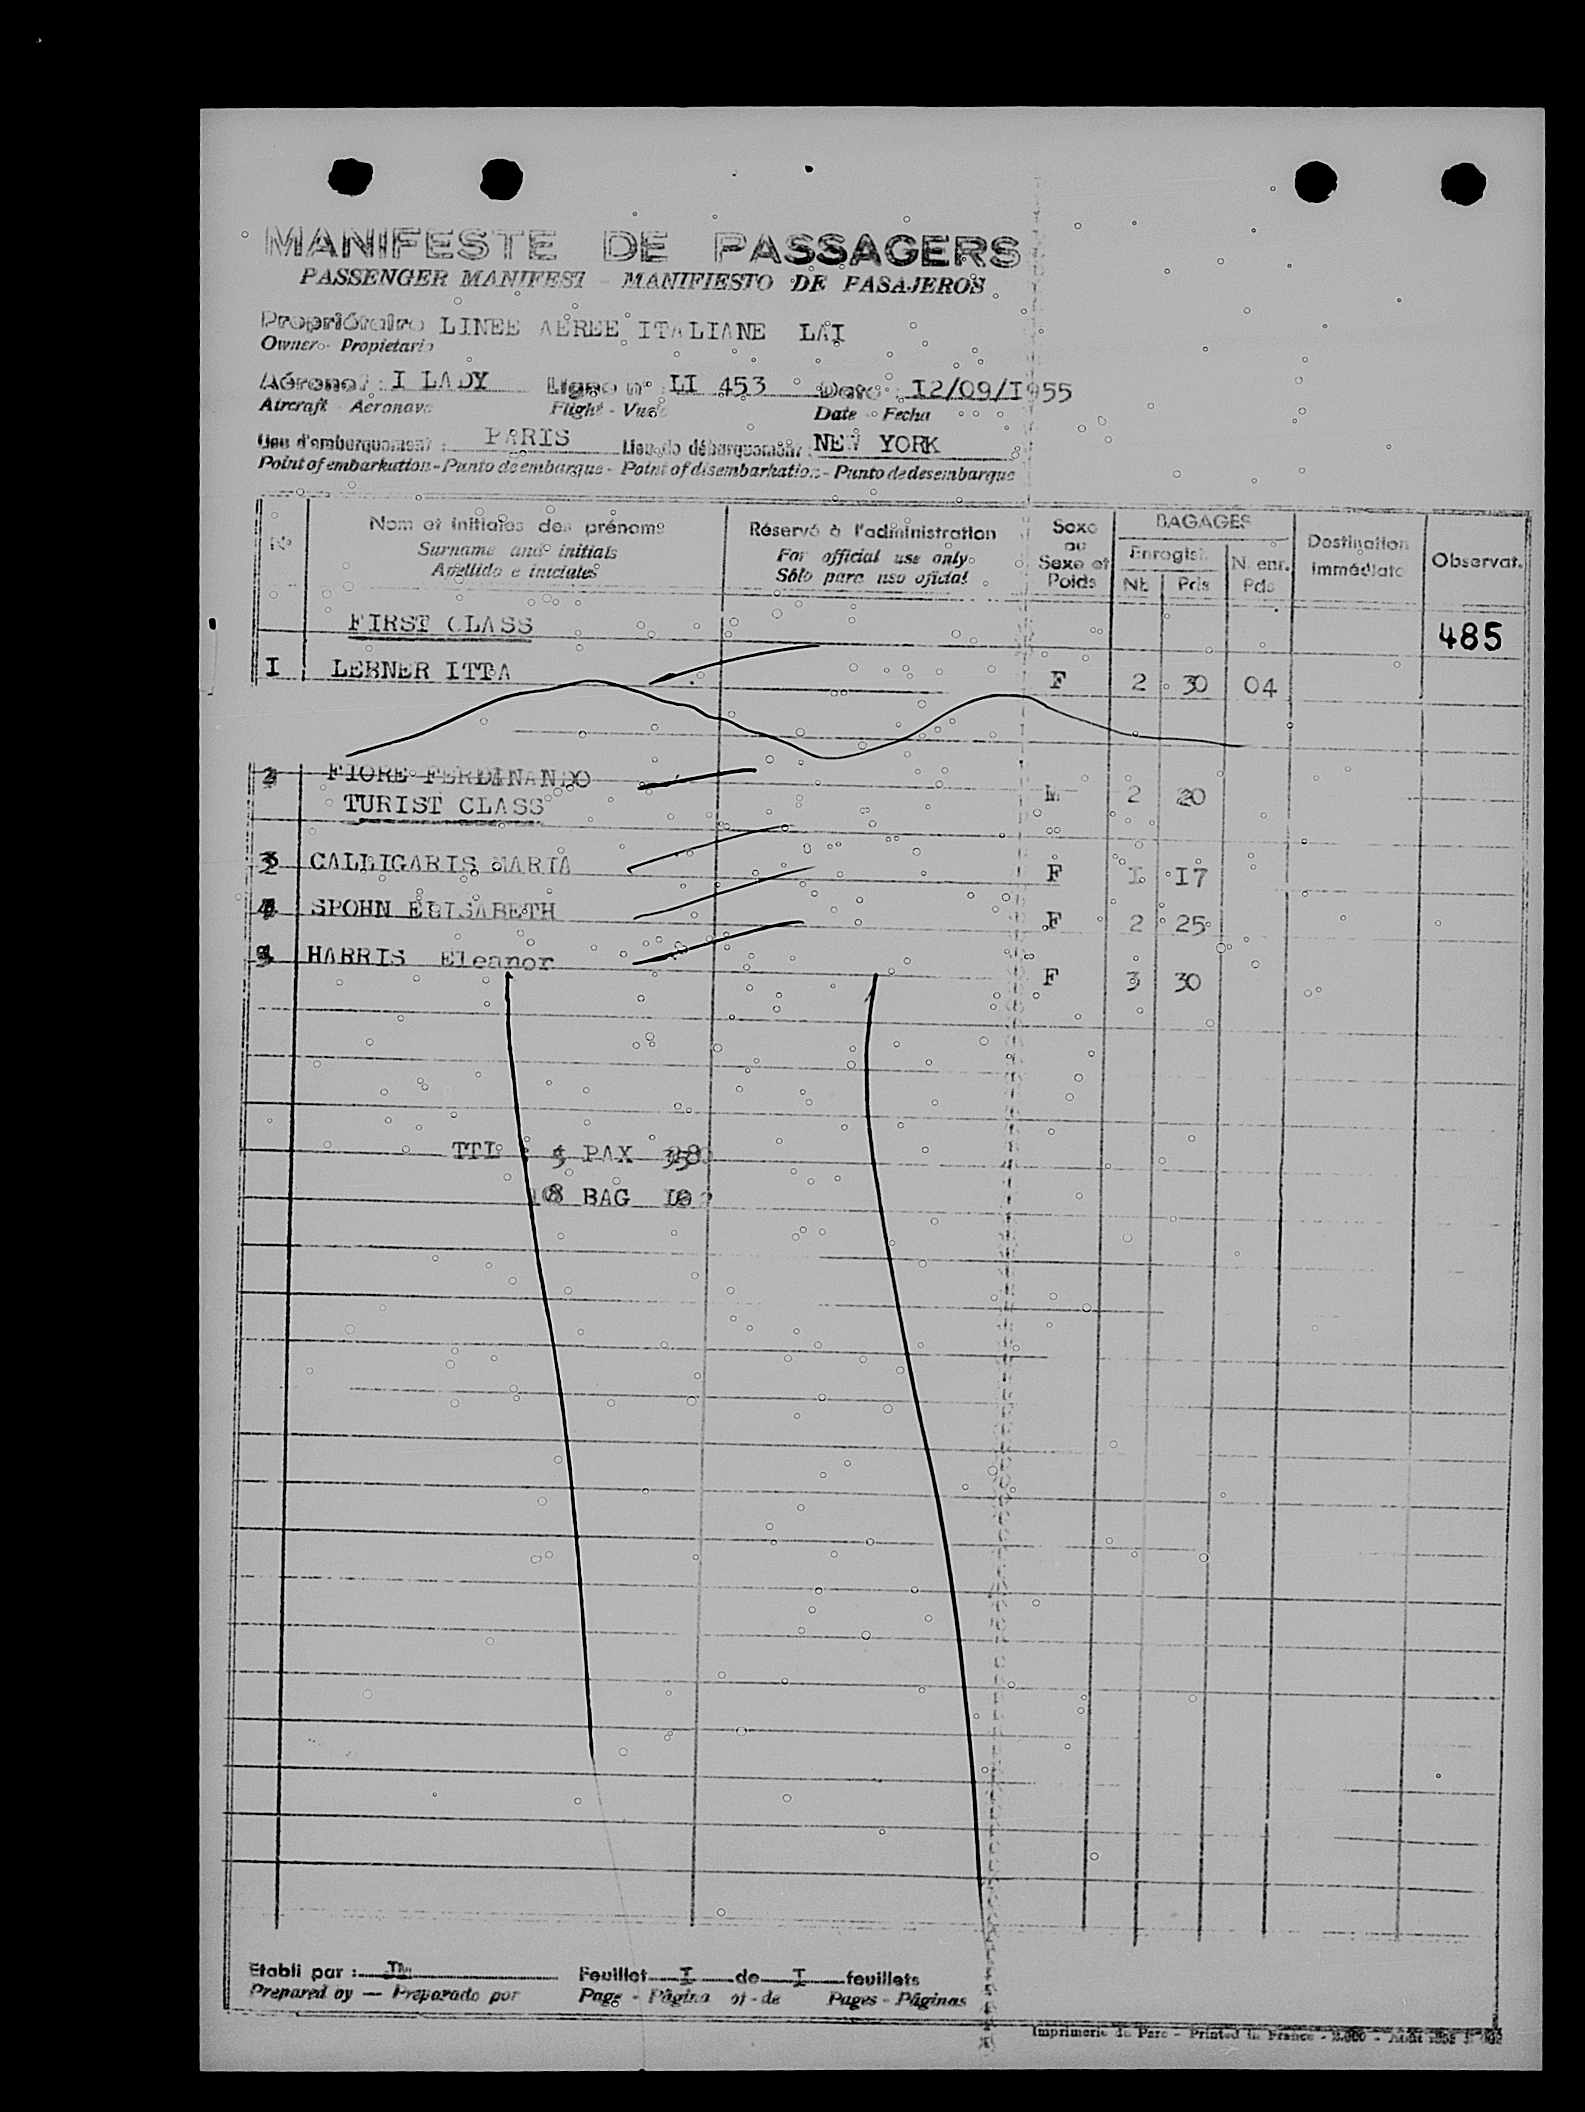 MANIFESTE DE PASSAGERS
PASSENGER MANIFEST - MANIFIESTO DE PASAJEROS
Propriétaire LINEE AEREE ITALIANE LAI
Owner - Propietario
Aéronef : I LADY Ligne n° LI 453 Date : I2/09/I955
Aircraft - Aeronave Flight - Vuelo Date - Fecha
Lieu d'embarquement : PARIS Lieu de débarquement : NEW YORK
Point of embarkation - Punto de embarque - Point of disembarkation - Punto de desembarque
N° Nom et initiales des prénoms Réservé à l'administration Sexe ou Sexe et Poids BAGAGES Destination immédiate Observat.
Surname and initials For official use only Enregist. N. enr.
Apellido e iniciales Sólo para uso oficial Nb Pds Pds
FIRST CLASS 485
I LERNER ITTA F 2 30 04
2 FIORE FERDINANDO M 2 20
TURIST CLASS
3 CALLIGARIS MARIA F I I7
4 SPOHN ELISABETH F 2 25
5 HARRIS Eleanor F 3 30
TTL : 5 PAX
BAG
Etabli par : TM Feuillet I de I feuillets
Prepared by — Preparado por Page - Página of - de Pages - Páginas
Imprimerie du Parc - Printed in France